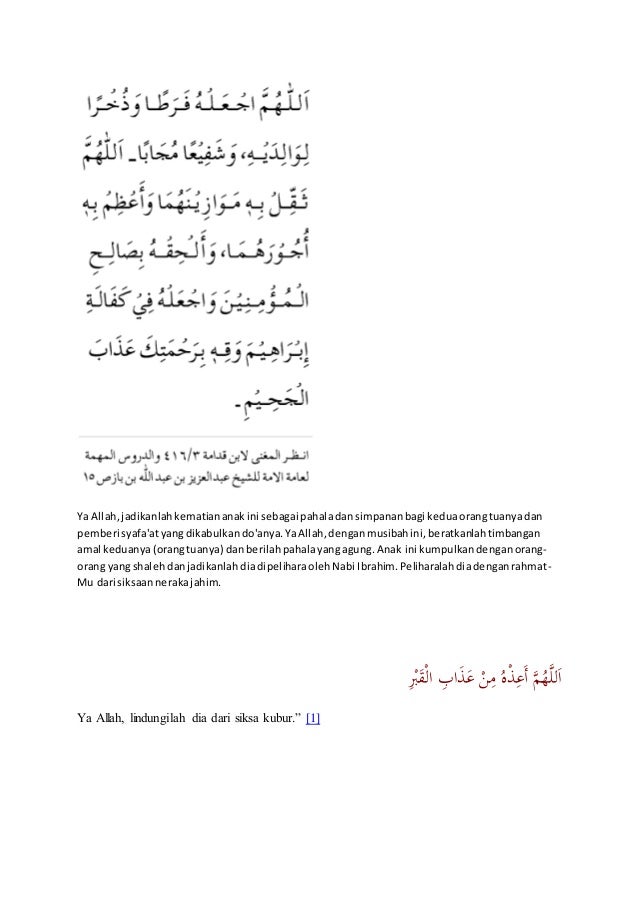 اَللّٰهُمَّ اجْعَلْهُ فَرَطًا وَذُخْرًا
لِوَالِدَيْهِ، وَشَفِيْعًا مُجَابًا۔ اَللّٰهُمَّ
ثَقِّلْ بِهٖ مَوَازِيْنَهُمَا وَأَعْظِمْ بِهٖ
أُجُوْرَهُمَا، وَأَلْحِقْهُ بِصَالِحِ
الْمُؤْمِنِيْنَ وَاجْعَلْهُ فِيْ كَفَالَةِ
إِبْرَاهِيْمَ وَقِهٖ بِرَحْمَتِكَ عَذَابَ
الْجَحِيْمِ۔
انظر المغنى لابن قدامة ٤١٦/٣ والدروس المهمة
لعامة الامة للشيخ عبدالعزيز بن عبد الله بن باز ص ١٥
Ya Allah, jadikanlah kematian anak ini sebagai pahala dan simpanan bagi kedua orang tuanya dan
pemberi syafa'at yang dikabulkan do'anya. Ya Allah, dengan musibah ini, beratkanlah timbangan
amal keduanya (orang tuanya) dan berilah pahala yang agung. Anak ini kumpulkan dengan orang-
orang yang shaleh dan jadikanlah dia dipelihara oleh Nabi Ibrahim. Peliharalah dia dengan rahmat-
Mu dari siksaan neraka jahim.
اَللَّهُمَّ أَعِذْهُ مِنْ عَذَابِ الْقَبْرِ
Ya Allah, lindungilah dia dari siksa kubur.” [1]